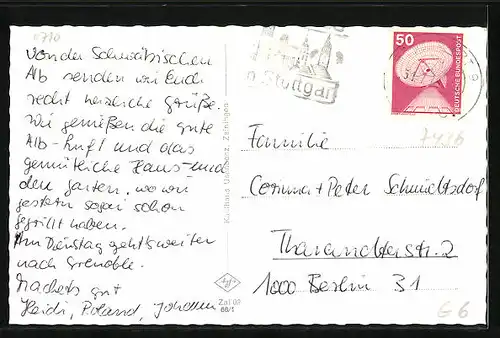 Von der Schwäbischen
Alb senden wir Euch
recht herzliche Grüße.
Wir genießen die gute
Alb-Luft und das
gemütliche Haus und
den Garten, wo wir
gestern sogar schon
gegrillt haben.
Am Dienstag geht's weiter
nach Grenoble.
Macht's gut
Heidi, Roland, Johannes
Stuttgart
50
DEUTSCHE BUNDESPOST
Familie
Corinna + Peter Schmidtsdorf
Tharandterstr. 2
1000 Berlin 31
Agfa
Zai 09
7436
G6